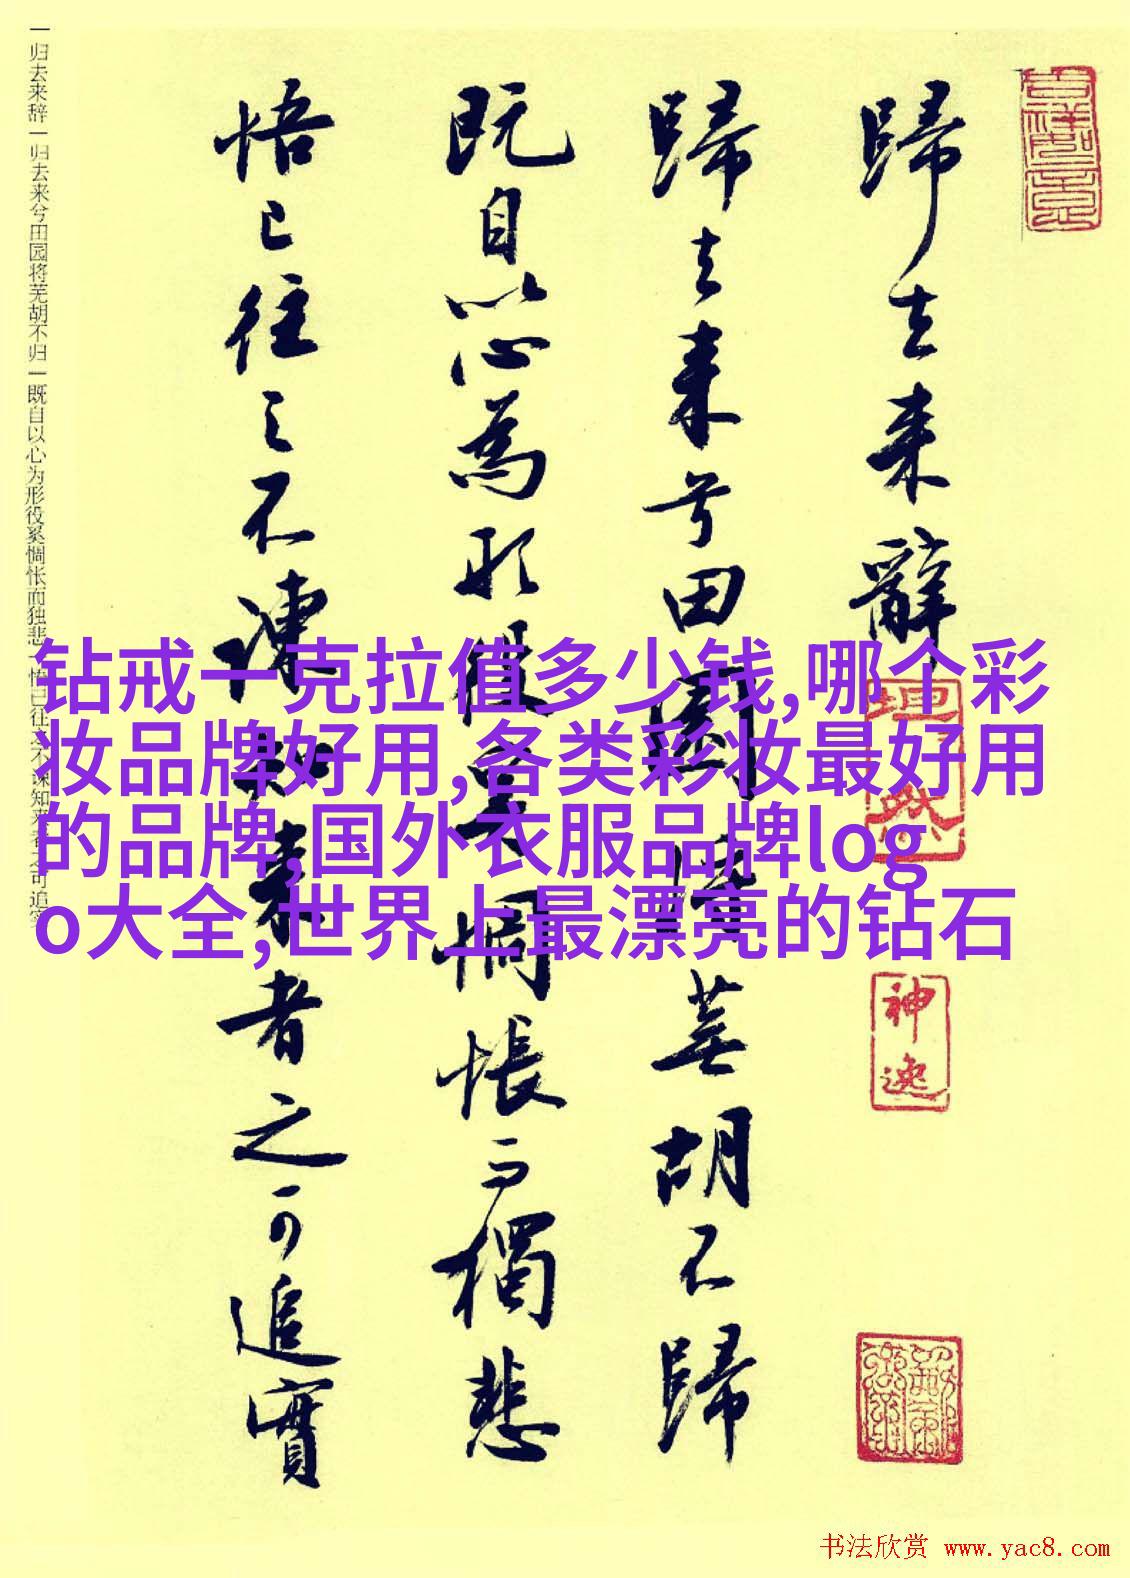 歸去来辭
歸去来兮田園将蕪胡不歸
既自以心為形役奚惆悵而獨悲
悟已往之不諫知来者之可追實
一归去来辞一归去来兮田园将芜胡不归一既自以心为形役奚惆怅而独悲一悟已往之不谏知来者之可追实
钻戒一克拉值多少钱,哪个彩
妆品牌好用,各类彩妆最好用
的品牌,国外衣服品牌log
o大全,世界上最漂亮的钻石
神逸
书法欣赏 www.yac8.com